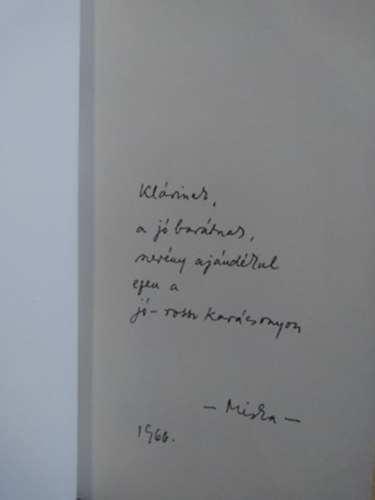 Klárinak,
a jó barátnak,
szerény ajándékul
ezen a
jó-rossz karácsonyon
- Miska -
1966.